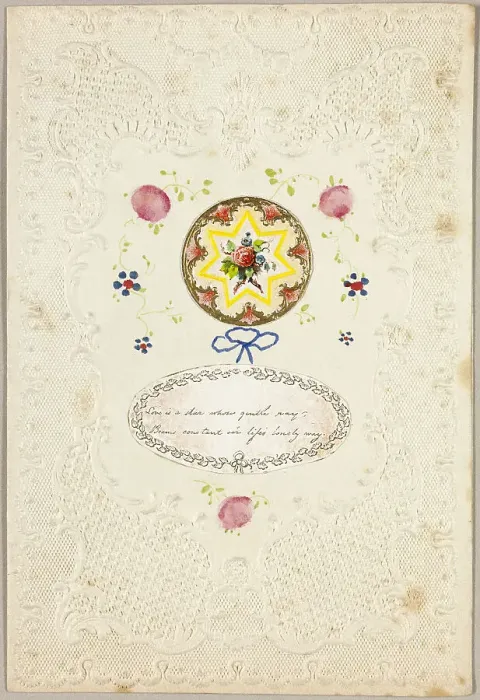 Love is a star whose gentle ray
Beams constant o'er life's lonely way